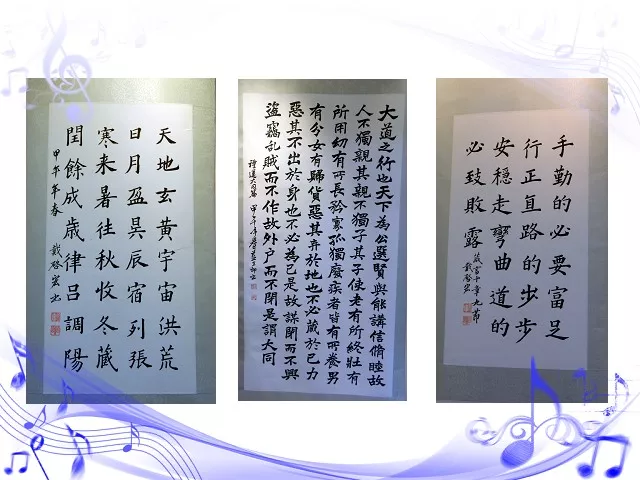 天地玄黃宇宙洪荒
日月盈昃辰宿列張
寒来暑往秋收冬藏
閏餘成歲律吕調陽
甲午年春 戴啓宏书
大道之行也天下為公選賢與能講信脩睦故
人不獨親其親不獨子其子使老有所終壯有
所用幼有所長矜寡孤獨廢疾者皆有所養男
有分女有歸貨惡其弃於地也不必藏於己力
惡其不出於身也不必為己是故謀閉而不興
盗竊乱賊而不作故外户而不閉是謂大同
禮運大同篇 甲午年春
手勤的必要富足
行正直路的步步
安穩走彎曲道的
必致敗露
箴言十章九節
戴啓宏